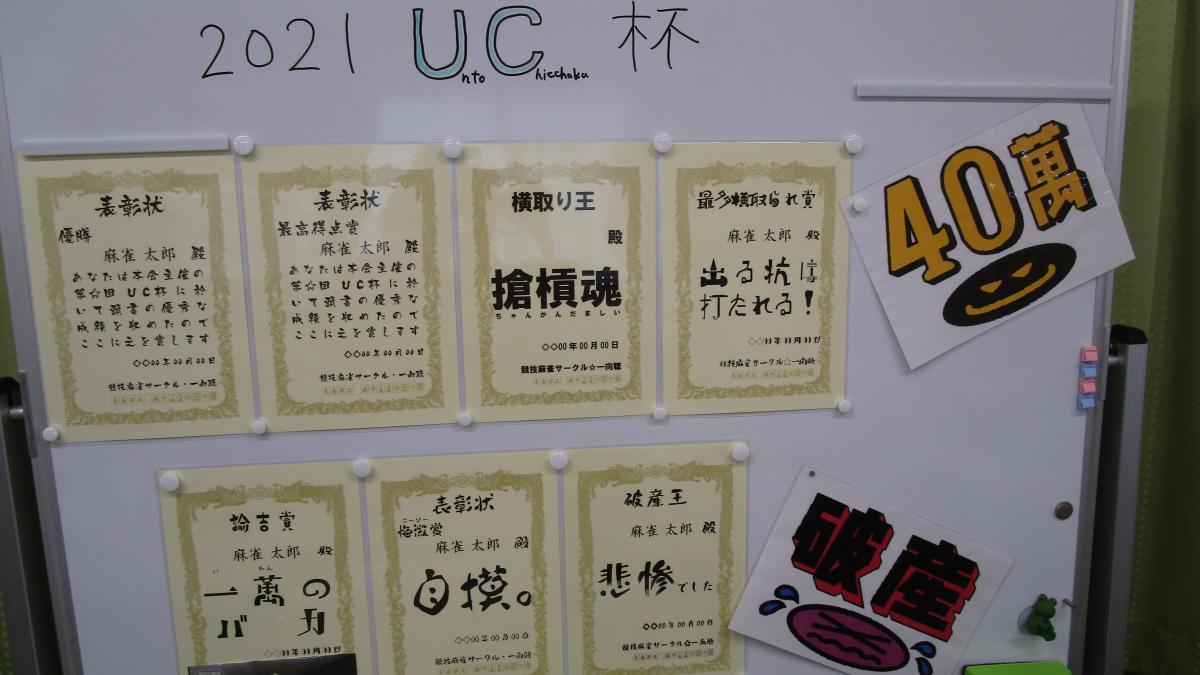 2021 UC杯
nto hicchaku
表彰状
優勝
麻雀 太郎 殿
あなたは本会主催の
第☆回 UC杯に於
いて頭書の優秀な
成績を収めたので
ここに之を賞します
◇◇00年00月00日
競技麻雀サークル・一向聴
表彰状
最高得点賞
麻雀 太郎 殿
あなたは本会主催の
第☆回 UC杯に於
いて頭書の優秀な
成績を収めたので
ここに之を賞します
◇◇00年00月00日
競技麻雀サークル・一向聴
横取り王
殿
搶槓魂
ちゃんかんだましい
◇◇00年00月00日
競技麻雀サークル☆一向聴
最多横取られ賞
麻雀 太郎 殿
出る杭は
打たれる！
競技麻雀サークル☆一向聴
40萬
諭吉賞
麻雀 太郎 殿
一萬の
バカ
表彰状
麻雀 太郎 殿
自摸。
◇◇00年00月00日
競技麻雀サークル・一向聴
破産王
麻雀 太郎 殿
悲惨でした
◇◇00年00月00日
競技麻雀サークル☆一向聴
破産